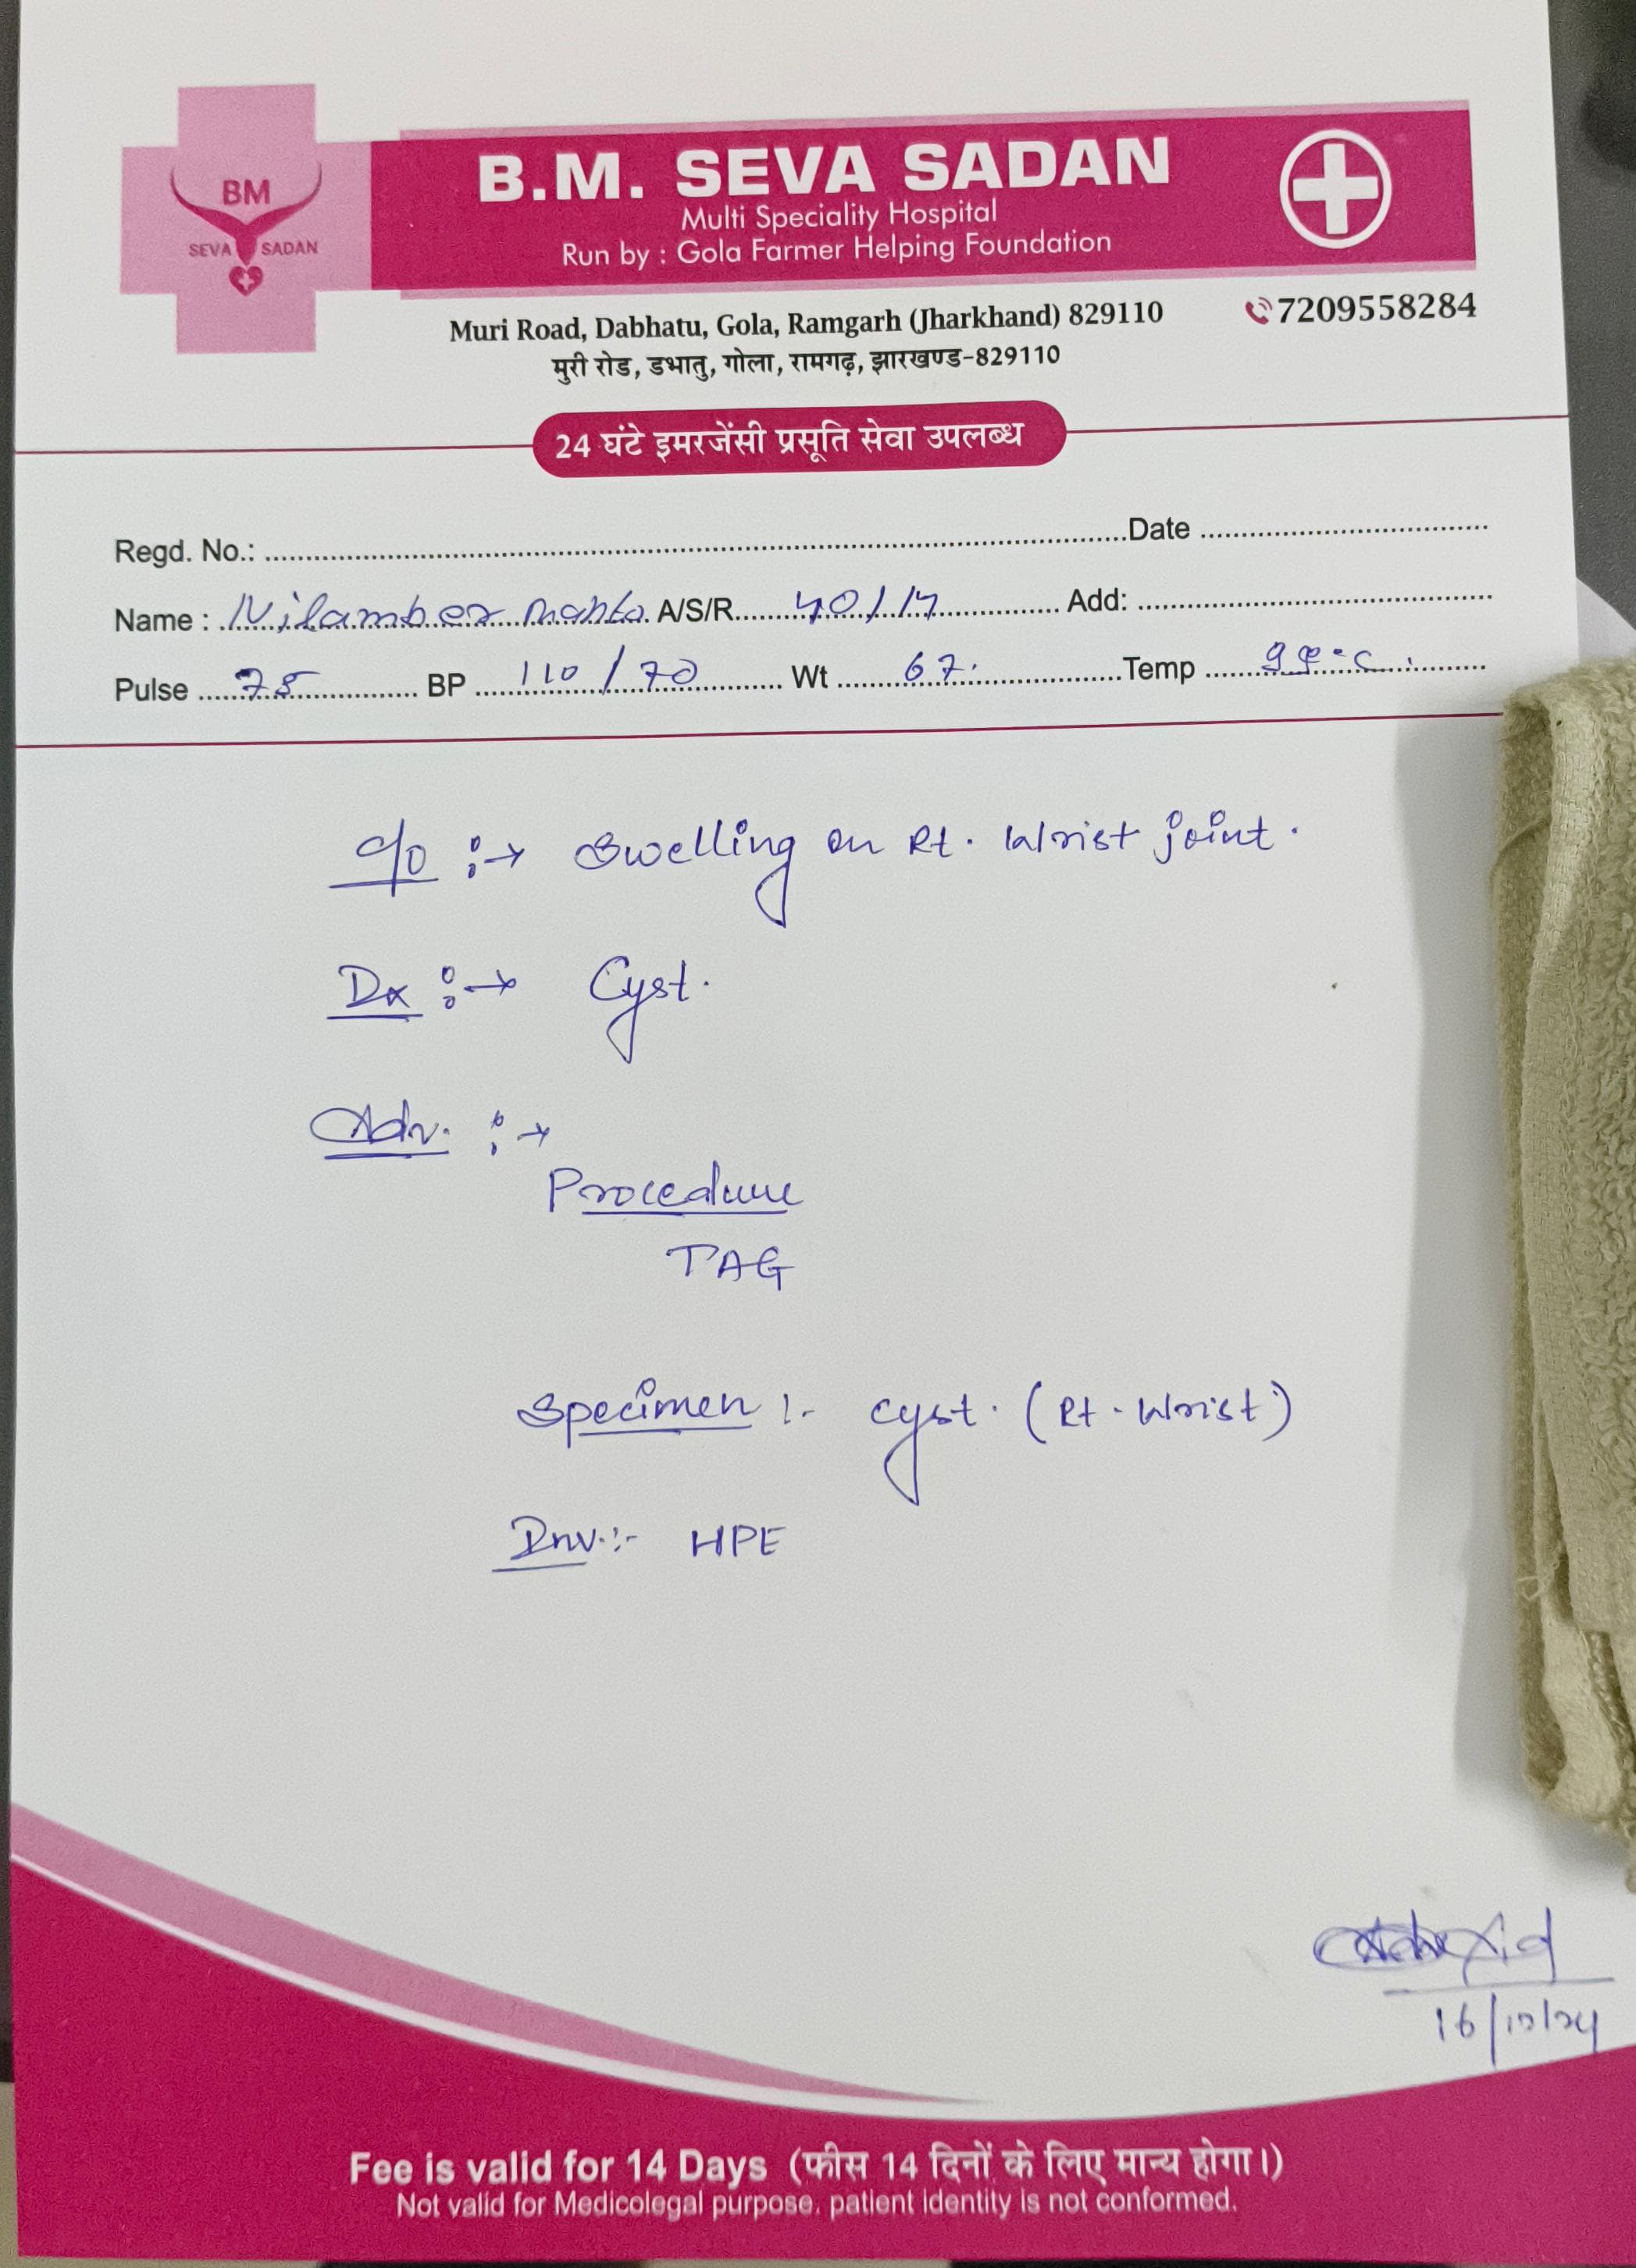 BM
SEVA SADAN
B.M. SEVA SADAN
Multi Speciality Hospital
Run by : Gola Farmer Helping Foundation
Muri Road, Dabhatu, Gola, Ramgarh (Jharkhand) 829110
7209558284
मुरी रोड, डभातु, गोला, रामगढ़, झारखण्ड-829110
24 घंटे इमरजेंसी प्रसूति सेवा उपलब्ध
Regd. No.: Date
Name : Nilamber Mahto A/S/R 40/M Add:
Pulse 78 BP 110/70 Wt 67. Temp
c/o :→ Swelling on Rt. Wrist joint.
Dx :→ Cyst.
Adv. :→
Procedure
TAG
Specimen :- cyst. (Rt. Wrist)
Inv. :- HPE
16/12/24
Fee is valid for 14 Days (फीस 14 दिनों के लिए मान्य होगा।)
Not valid for Medicolegal purpose, patient identity is not conformed.